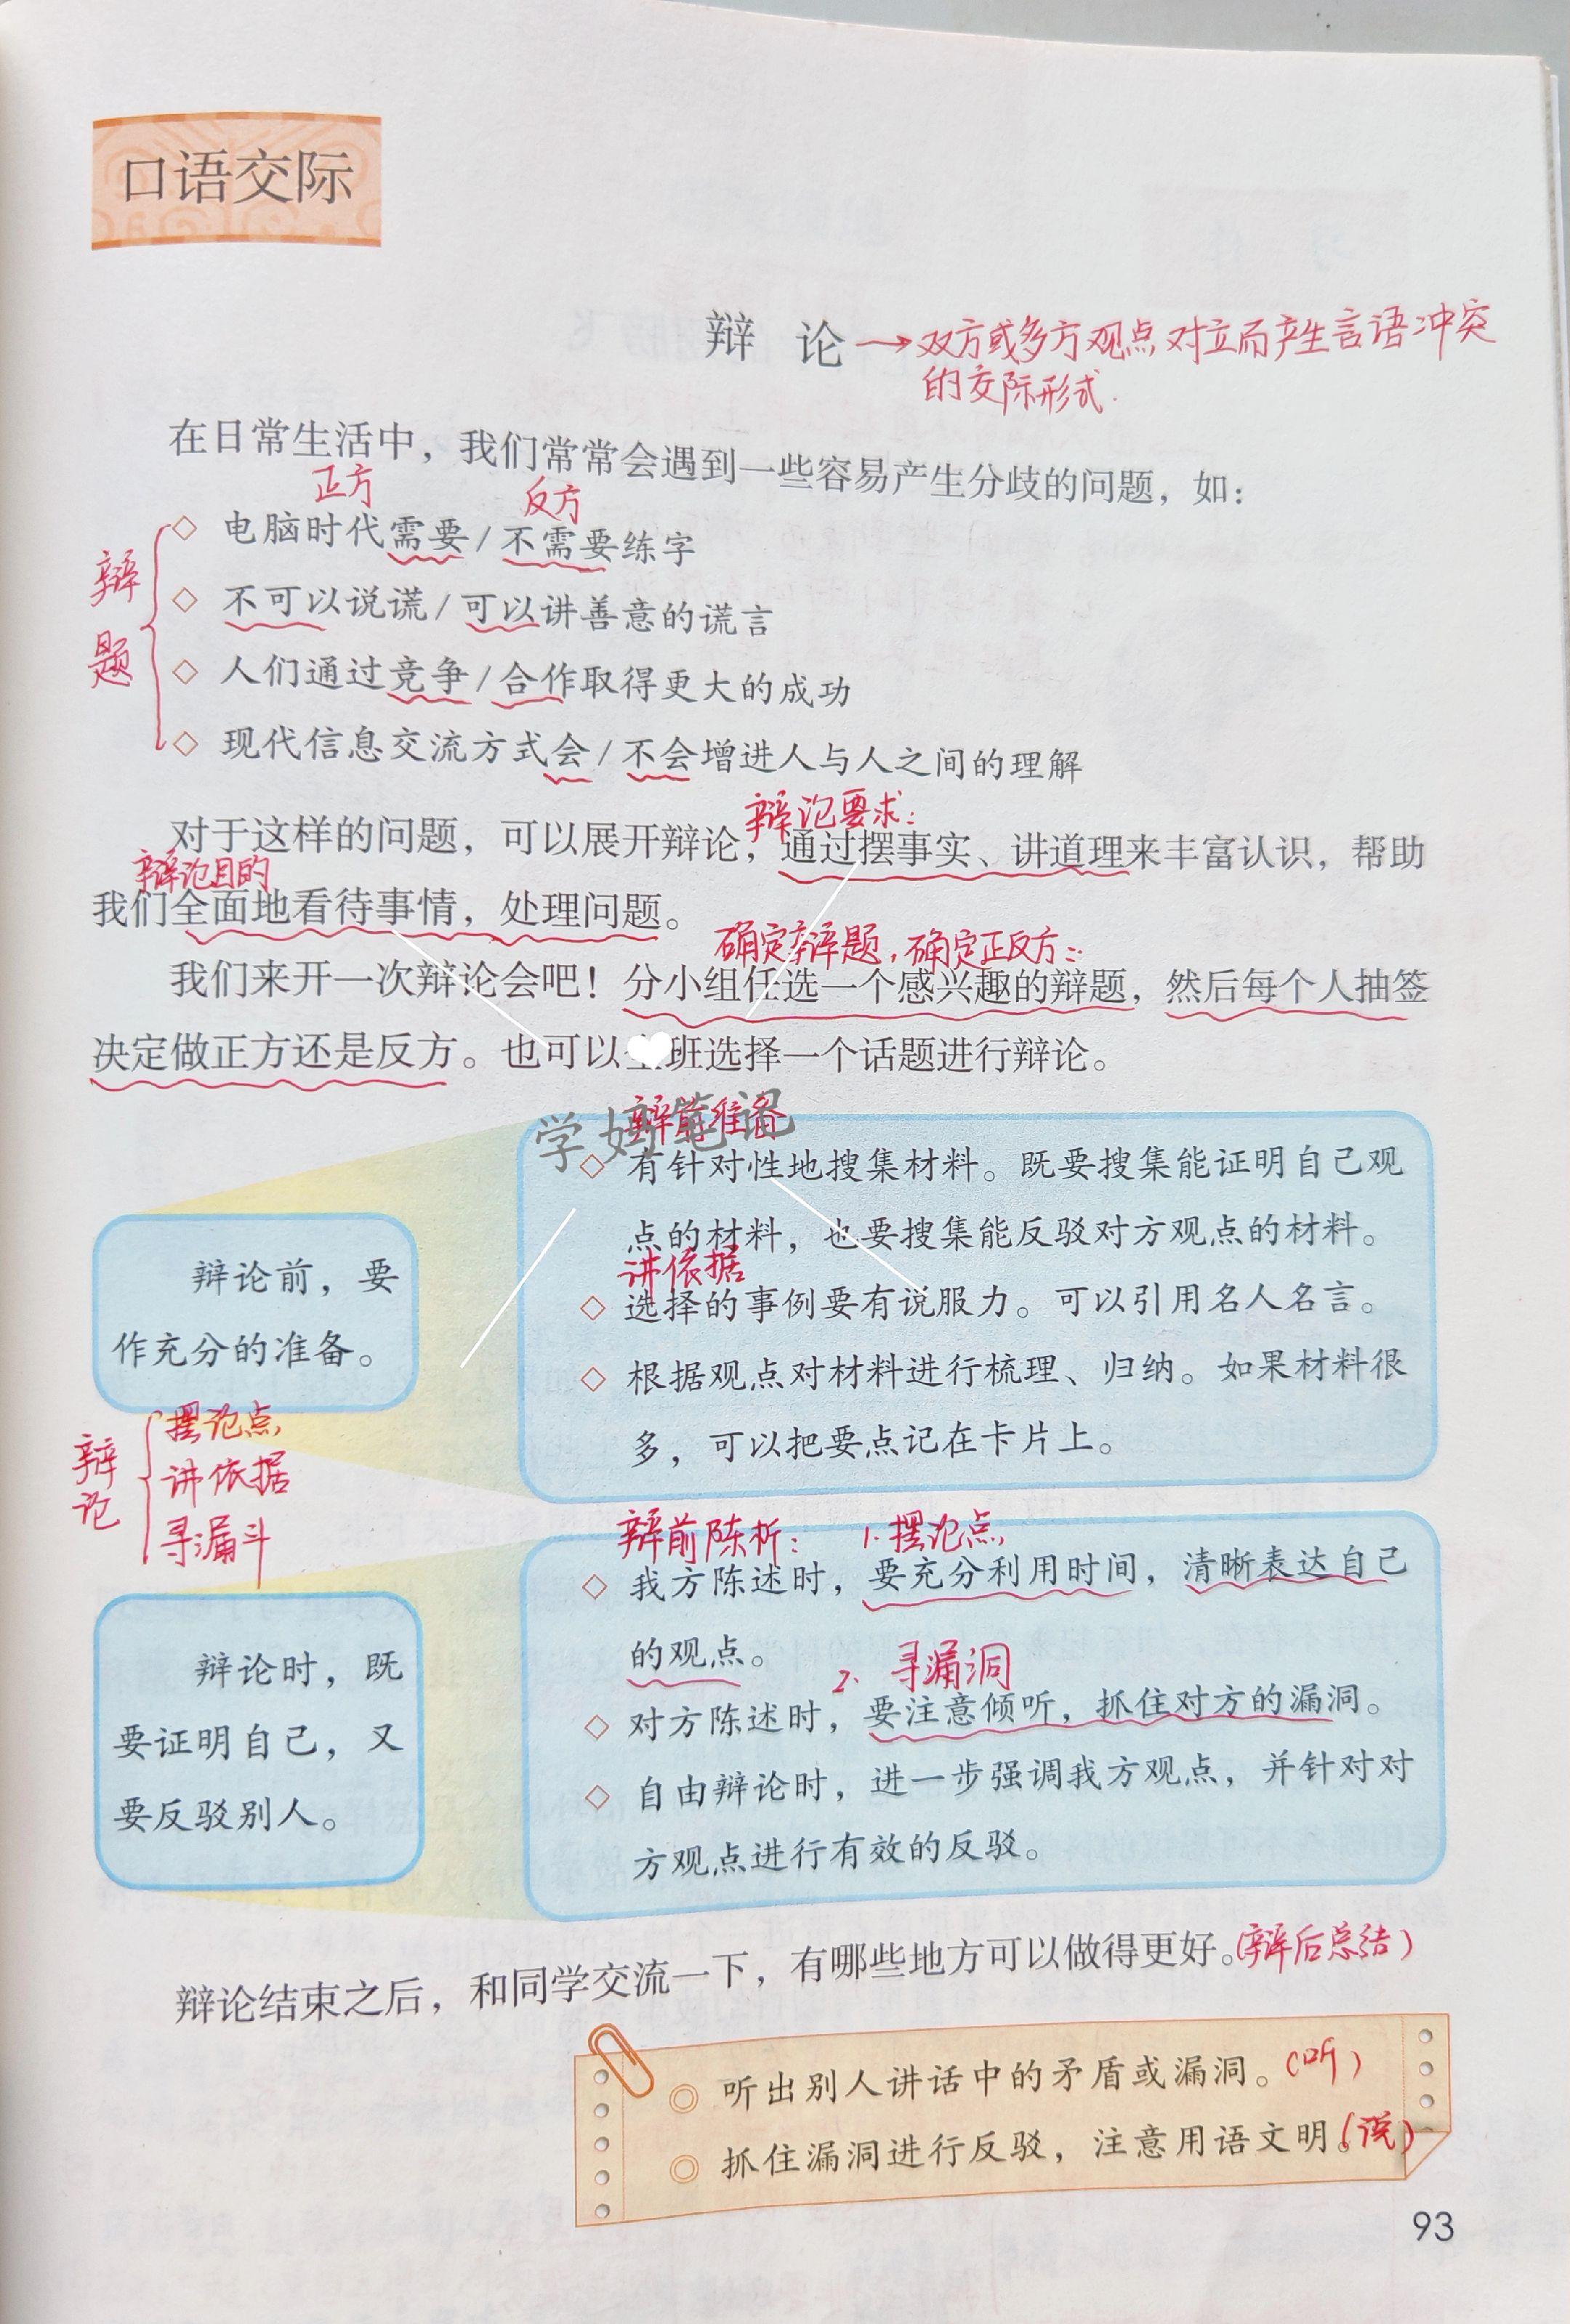 口语交际
辩 论→双方或多方观点对立而产生言语冲突
的交际形式.
在日常生活中，我们常常会遇到一些容易产生分歧的问题，如：
正方 反方
◇ 电脑时代需要/不需要练字
辩题
◇ 不可以说谎/可以讲善意的谎言
◇ 人们通过竞争/合作取得更大的成功
◇ 现代信息交流方式会/不会增进人与人之间的理解
辩论要求：
对于这样的问题，可以展开辩论，通过摆事实、讲道理来丰富认识，帮助
辩论目的
我们全面地看待事情，处理问题。
确定辩题，确定正反方：
我们来开一次辩论会吧！分小组任选一个感兴趣的辩题，然后每个人抽签
决定做正方还是反方。也可以班选择一个话题进行辩论。
学妈笔记
辩前准备
◇ 有针对性地搜集材料。既要搜集能证明自己观
点的材料，也要搜集能反驳对方观点的材料。
讲依据
◇ 选择的事例要有说服力。可以引用名人名言。
◇ 根据观点对材料进行梳理、归纳。如果材料很
多，可以把要点记在卡片上。
辩论前，要
作充分的准备。
辩论
摆论点
讲依据
寻漏斗
辩前陈析： 1.摆论点
◇ 我方陈述时，要充分利用时间，清晰表达自己
的观点。
2、寻漏洞
◇ 对方陈述时，要注意倾听，抓住对方的漏洞。
◇ 自由辩论时，进一步强调我方观点，并针对对
方观点进行有效的反驳。
辩论时，既
要证明自己，又
要反驳别人。
辩论结束之后，和同学交流一下，有哪些地方可以做得更好。(辩后总结)
◎ 听出别人讲话中的矛盾或漏洞。(听)
◎ 抓住漏洞进行反驳，注意用语文明。(说)
93